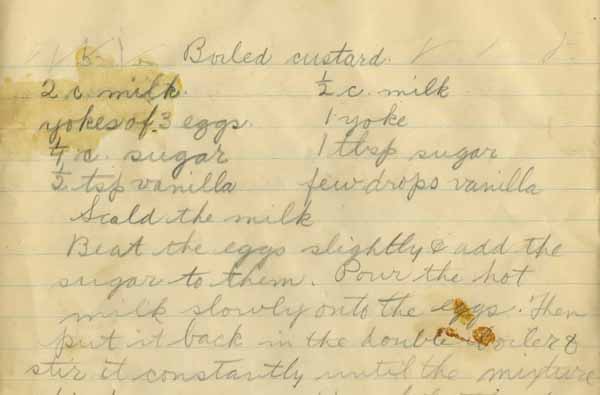 Boiled custard.
2 c. milk. ½ c. milk
yokes of 3 eggs. 1 yoke
¼ c. sugar 1 tbsp sugar
½ tsp vanilla few drops vanilla
Scald the milk
Beat the eggs slightly & add the
sugar to them. Pour the hot
milk slowly onto the eggs. Then
put it back in the double boiler &
stir it constantly until the mixture